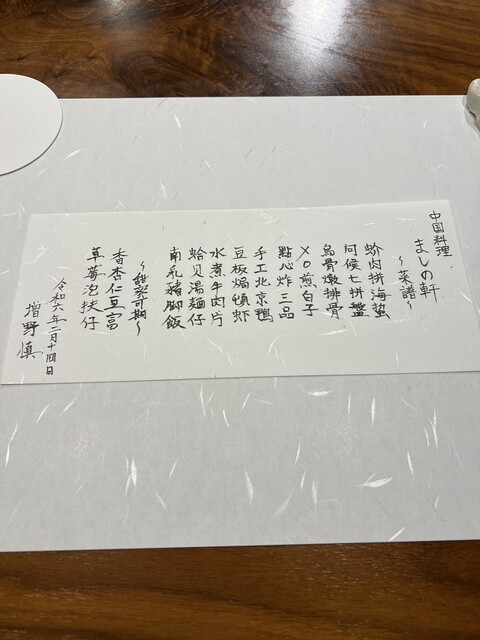 中国料理
ましの軒
〜菜譜〜
蚧肉拼海蜇
伺候七拼盤
烏骨燉排骨
XO煎白子
點心炸三品
手工北京鴨
豆板焗頓虾
水煮牛肉片
蛤贝湯麺仔
南乳豬脚飯
〜甜密可期〜
香杏仁豆富
草莓泡扶仔
令和六年二月十四日
増野慎